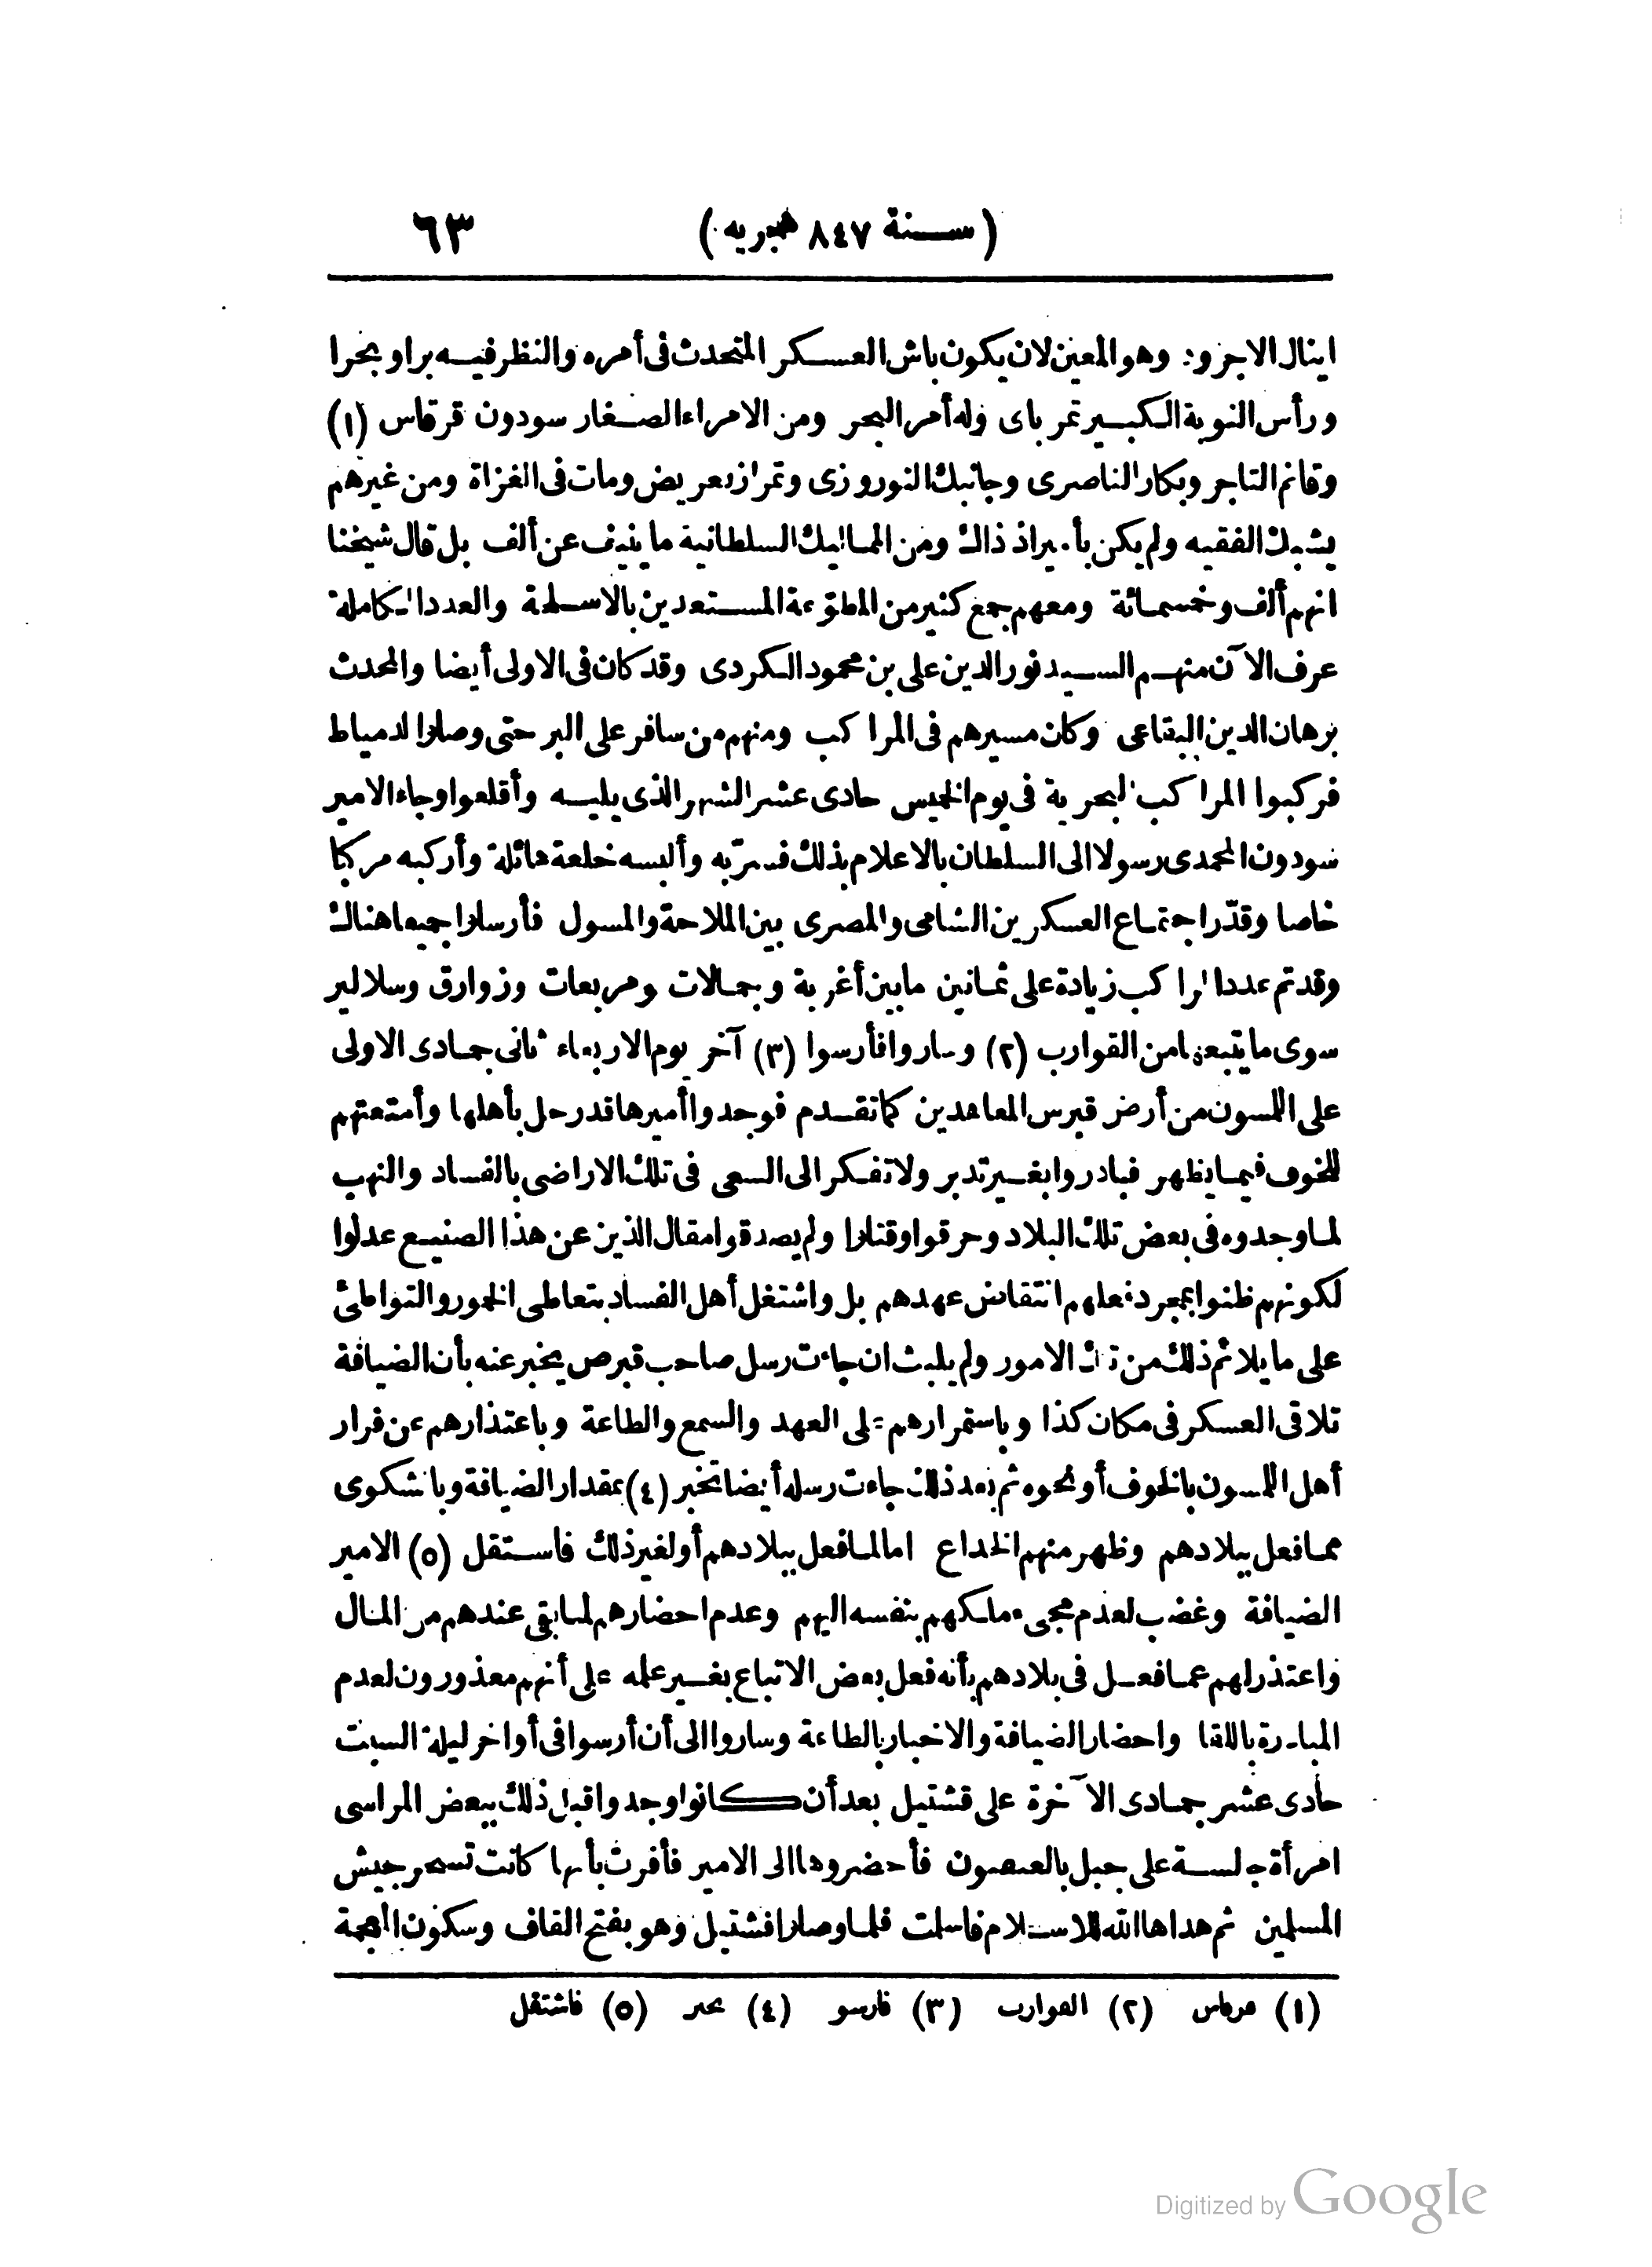 (سنة ٨٤٧ هجريه) ٦٣
اينال الاجرود وهو المعين لان يكون باش العسكر المتحدث فى أمره والنظر فيه برا وبحرا
ورأس النوبة الكبير تمر باى وله أمر البحر ومن الامراء الصغار سودون قرقاس (١)
وقانم التاجر وبكار الناصرى وجانبك النوروزى وتمراز تعريض ومات فى الغزاة ومن غيرهم
يشبك الفقيه ولم يكن بأمير اذ ذاك ومن المماليك السلطانية ما ينيف عن ألف بل قال شيخنا
انهم ألف وخمسمائة ومعهم جمع كثير من المطوّعة المستعدين بالاسلحة والعدد الكاملة
عرف الآن منهم السيد نور الدين على بن محمود الكردى وقد كان فى الاولى أيضا والمحدث
برهان الدين البقاعى وكان مسيرهم فى المراكب ومنهم من سافر على البر حتى وصلوا لدمياط
فركبوا المراكب البحرية فى يوم الخميس حادى عشر الشهر الذى يليه وأقلعوا وجاء الامير
سودون المحمدى رسولا الى السلطان بالاعلام بذلك فسرّ به وألبسه خلعة هائلة وأركبه مركبا
خاصا وقدّر اجتماع العسكرين الشامى والمصرى بين الملاحة والمسول فأرسلوا جميعا هناك
وقد تم عدد المراكب زيادة على ثمانين ما بين أغربة وحمالات ومربعات وزوارق وسلالير
سوى ما يتبعها من القوارب (٢) وساروا فأرسوا (٣) آخر يوم الاربعاء ثانى جمادى الاولى
على اللمسون من أرض قبرس المعاهدين كما تقدم فوجدوا أميرها قد رحل بأهلها وأمتعتهم
للخوف فيما يظهر فبادروا بغير تدبر ولا تفكر الى السعى فى تلك الاراضى بالفساد والنهب
لما وجدوه فى بعض تلك البلاد وحرقوا وقتلوا ولم يصدقوا مقال الذين عن هذا الصنيع عدلوا
لكونهم ظنوا بمجرد فعلهم انتقاض عهدهم بل واشتغل أهل الفساد بتعاطى الخمور والتواطئ
على ما يلائم ذلك من تلك الامور ولم يلبث ان جاءت رسل صاحب قبرص يخبر عنه بأن الضيافة
تلاقى العسكر فى مكان كذا وباستمرارهم على العهد والسمع والطاعة وباعتذارهم عن فرار
أهل اللمسون بالخوف أو نحوه ثم بعد ذلك جاءت رسله أيضا تخبر (٤) بمقدار الضيافة وبالشكوى
مما فعل ببلادهم وظهر منهم الخداع اما لما فعل ببلادهم أو لغير ذلك فاستقل (٥) الامير
الضيافة وغضب لعدم مجىء ملكهم بنفسه اليهم وعدم احضارهم لما بقى عندهم من المال
واعتذر لهم عما فعل فى بلادهم بأنه فعل بعض الاتباع بغير علمه على أنهم معذورون لعدم
المبادرة باللقا واحضار الضيافة والاخبار بالطاعة وساروا الى أن أرسوا فى أواخر ليلة السبت
حادى عشر جمادى الآخرة على قشتيل بعد أن كانوا وجدوا قبل ذلك ببعض المراسى
امرأة جالسة على جبل بالعصون فأحضروها الى الامير فأقرت بأنها كانت تسحر جيش
المسلمين ثم هداها الله للاسلام فاسلمت فلما وصلوا قشتيل وهو بفتح القاف وسكون المعجمة
(١) مرماس (٢) العوارب (٣) فارسو (٤) بحبر (٥) فاشتقل
Digitized by Google